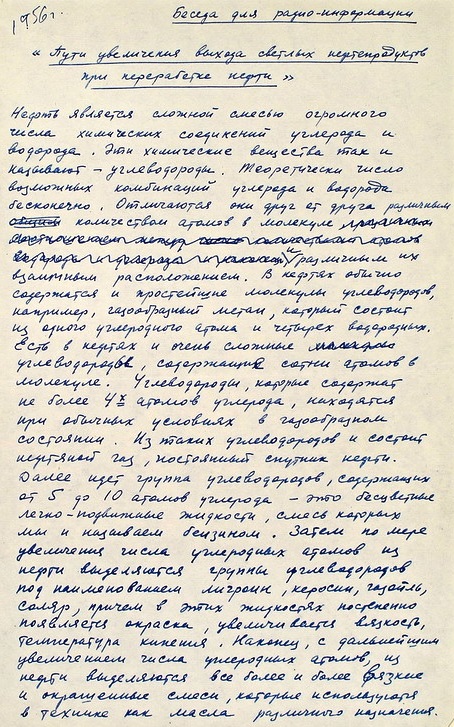 1956г.
Беседа для радио-информации
« Пути увеличения выхода светлых нефтепродуктов
при переработке нефти »
Нефть является сложной смесью огромного
числа химических соединений углерода и
водорода. Эти химические вещества так и
называют – углеводороды. Теоретически число
возможных комбинаций углерода и водорода
бесконечно. Отличаются они друг от друга различным
количеством атомов в молекуле
и различным их
взаимным расположением. В нефтях обычно
содержатся и простейшие молекулы углеводородов,
например, газообразный метан, который состоит
из одного углеродного атома и четырех водородных.
Есть в нефтях и очень сложные
углеводороды, содержащие сотни атомов в
молекуле. Углеводороды, которые содержат
не более 4х атомов углерода, находятся
при обычных условиях в газообразном
состоянии. Из таких углеводородов и состоит
нефтяной газ, постоянный спутник нефти.
Далее идет группа углеводородов, содержащих
от 5 до 10 атомов углерода – это бесцветные
легко-подвижные жидкости, смесь которых
мы и называем бензином. Затем по мере
увеличения числа углеродных атомов из
нефти выделяются группы углеводородов
под наименованием лигроин, керосин, газойль,
соляр, причем в этих жидкостях постепенно
появляется окраска, увеличивается вязкость,
температура кипения. Наконец, с дальнейшим
увеличением числа углеродных атомов, из
нефти выделяются все более и более вязкие
и окрашенные смеси, которые используются
в технике как масла различного назначения.